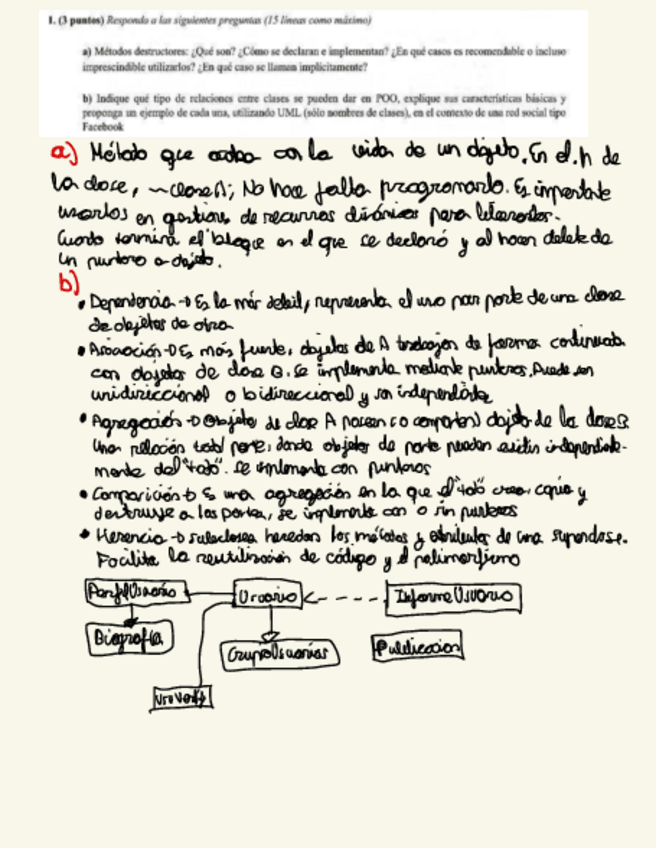 1. (3 puntos) Responda a las siguientes preguntas (15 líneas como máximo)
a) Métodos destructores: ¿Qué son? ¿Cómo se declaran e implementan? ¿En qué casos es recomendable o incluso
imprescindible utilizarlos? ¿En qué caso se llaman implícitamente?
b) Indique qué tipo de relaciones entre clases se pueden dar en POO, explique sus características básicas y
proponga un ejemplo de cada una, utilizando UML (sólo nombres de clases), en el contexto de una red social tipo
Facebook
a) Método que acaba con la vida de un objeto. En el .h de
la clase, ~claseA; No hace falta programarlo. Es importante
usarlos en gestiones de recursos dinámicos para liberarlos.
Cuando termina el bloque en el que se declaró y al hacer delete de
un puntero a objeto.
b)
• Dependencia → Es la más debil, representa el uso por parte de una clase
de objetos de otra
• Asociación → Es más fuerte, objetos de A trabajan de forma continuada
con objetos de clase B. Se implementa mediante punteros. Puede ser
unidireccional o bidireccional y son independiente
• Agregación → Objetos de clase A poseen (o comparten) objeto de la clase B.
Una relación todo/parte, donde objetos de parte pueden existir independiente-
mente del "todo". Se implementa con punteros
• Composición → Es una agregación en la que el "todo" crea, copia y
destruye a las partes, se implementa con o sin punteros
• Herencia → subclases heredan los métodos y atributos de una superclase.
Facilita la reutilización de código y el polimorfismo
PerfilUsuario Usuario InformeUsuario
Biografía GrupoUsuarios Publicacion